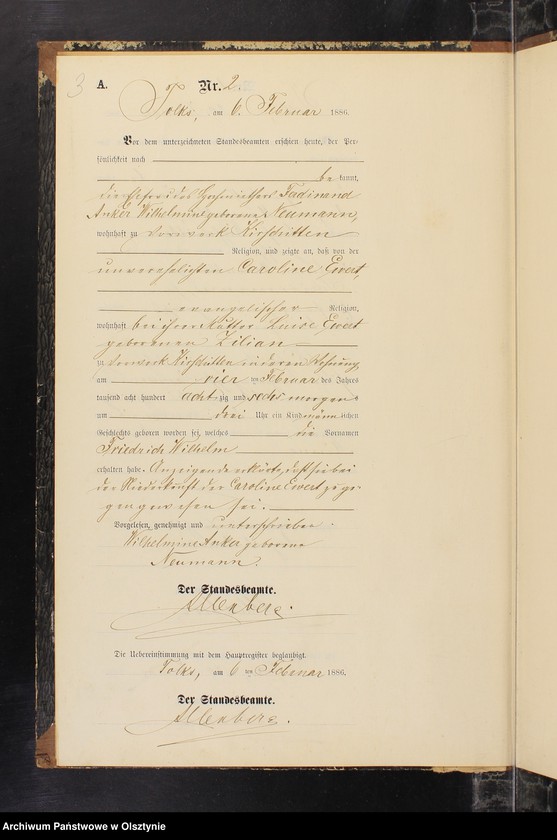 3
A. Nr. 2.
Tolks, am 6. Februar 1886.
Vor dem unterzeichneten Standesbeamten erschien heute, der Per-
sönlichkeit nach
be kannt,
die Ehefrau des Ferdinand
Anker Wilhelmine geborene Neumann,
wohnhaft zu Vorwerk Kirschitten
Religion, und zeigte an, daß von der
unverehelichten Caroline Ewert,
evangelischer Religion,
wohnhaft bei ihrer Mutter Luise Ewert
geborenen Zilian
zu Vorwerk Kirschitten in deren Wohnung,
am vier ten Februar des Jahres
tausend acht hundert acht zig und sechs morgens
um drei Uhr ein Kind männlichen
Geschlechts geboren worden sei, welches die Vornamen
Friedrich Wilhelm
erhalten habe. Anzeigende erklärte, daß sie bei
der Niederkunft der Caroline Ewert zuge-
gen gewesen sei.
Vorgelesen, genehmigt und unterschrieben
Wilhelmine Anker geborene
Neumann.
Der Standesbeamte.
Allenberg.
Die Uebereinstimmung mit dem Hauptregister beglaubigt.
Tolks, am 6 ten Februar 1886.
Der Standesbeamte.
Allenberg.
Archiwum Państwowe w Olsztynie